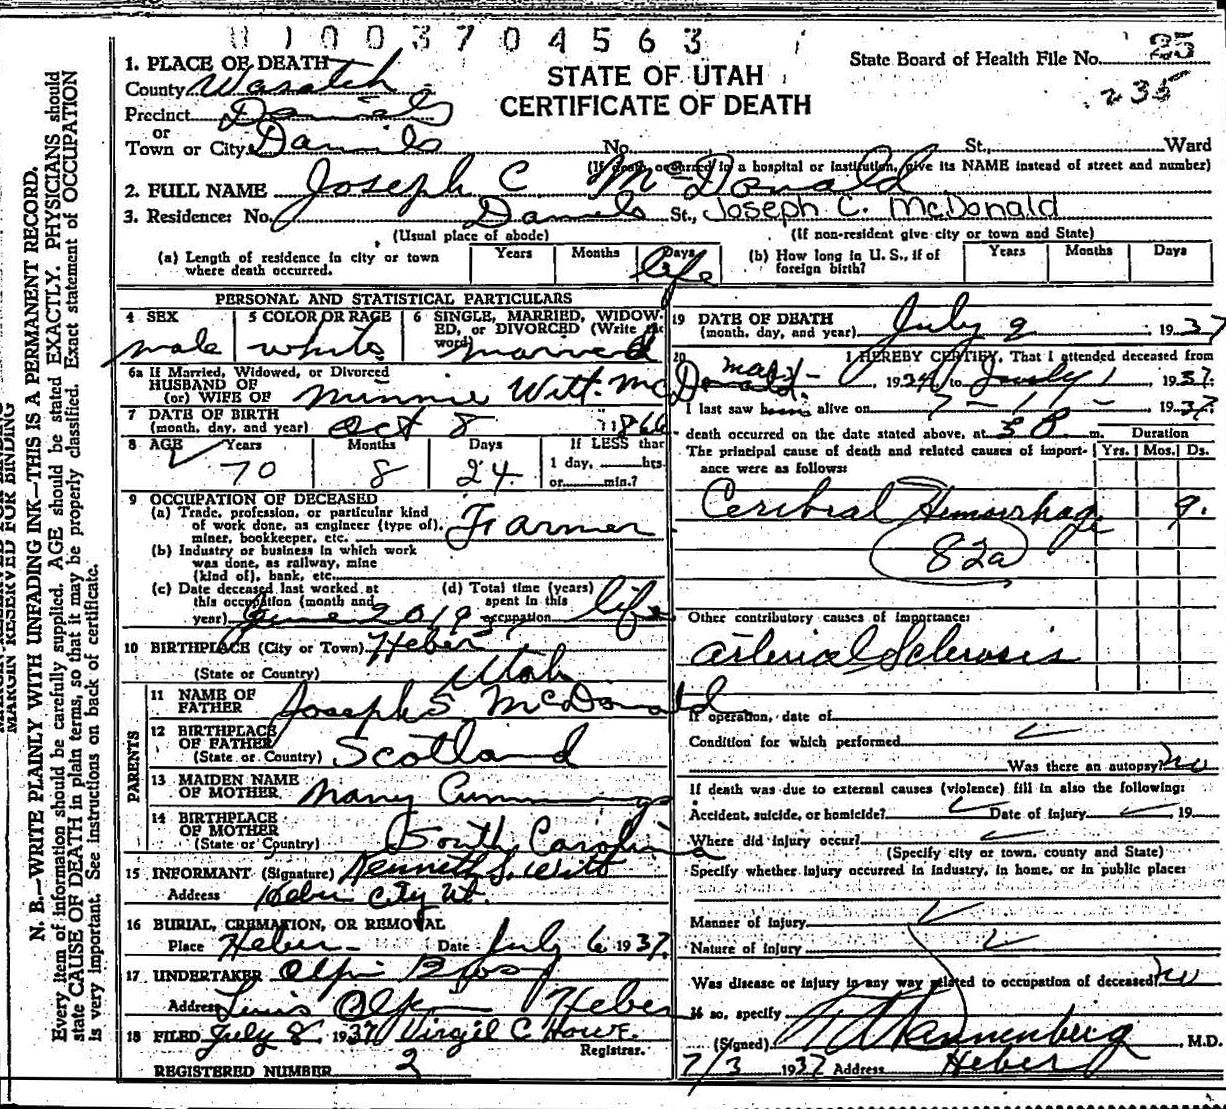 0 1 0 0 3 7 0 4 5 6 3
State Board of Health File No. 25
235
STATE OF UTAH
CERTIFICATE OF DEATH
1. PLACE OF DEATH
County Wasatch
Precinct Daniels
or
Town or City Daniels No. St., Ward
(If death occurred in a hospital or institution, give its NAME instead of street and number)
2. FULL NAME Joseph C McDonald
3. Residence: No. Daniels St., Joseph C. McDonald
(Usual place of abode) (If non-resident give city or town and State)
(a) Length of residence in city or town where death occurred. Years Months Days life
(b) How long in U. S., if of foreign birth? Years Months Days
PERSONAL AND STATISTICAL PARTICULARS
4 SEX male
5 COLOR OR RACE white
6 SINGLE, MARRIED, WIDOWED, or DIVORCED (Write the word) married
6a If Married, Widowed, or Divorced
HUSBAND OF
(or) WIFE OF Minnie Witt McDonald
7 DATE OF BIRTH
(month, day, and year) Oct 8 1866
8 AGE Years 70 Months 8 Days 24
If LESS than
1 day, hrs.
or min.?
9 OCCUPATION OF DECEASED
(a) Trade, profession, or particular kind
of work done, as engineer (type of).
miner, bookkeeper, etc. Farmer
(b) Industry or business in which work
was done, as railway, mine
(kind of), bank, etc.
(c) Date deceased last worked at
this occupation (month and
year) June 20 19
(d) Total time (years)
spent in this
occupation life
10 BIRTHPLACE (City or Town) Heber
(State or Country) Utah
PARENTS
11 NAME OF
FATHER Joseph S McDonald
12 BIRTHPLACE
OF FATHER
(State or Country) Scotland
13 MAIDEN NAME
OF MOTHER Nancy Cummings
14 BIRTHPLACE
OF MOTHER
(State or Country) South Carolina
15 INFORMANT (Signature) Kenneth S. Witt
Address Heber City Ut.
16 BURIAL, CREMATION, OR REMOVAL
Place Heber Date July 6 1937
17 UNDERTAKER Olpin Bros
Address Heber
18 FILED July 8 1937 Virgil C Howe
Registrar.
REGISTERED NUMBER 2
19 DATE OF DEATH
(month, day, and year) July 2 1937
20 I HEREBY CERTIFY, That I attended deceased from
May 19 to July 1 1937.
I last saw him alive on 7-1- 1937.
death occurred on the date stated above, at 3 P m. Duration
The principal cause of death and related causes of importance were as follows: Yrs. Mos. Ds.
Cerebral Hemorrhage 9.
82a
Other contributory causes of importance:
Arterial Sclerosis
If operation, date of
Condition for which performed
Was there an autopsy? no
If death was due to external causes (violence) fill in also the following:
Accident, suicide, or homicide? Date of injury 19
Where did injury occur?
(Specify city or town, county and State)
Specify whether injury occurred in industry, in home, or in public place:
Manner of injury
Nature of injury
Was disease or injury in any way related to occupation of deceased? no
If so, specify
(Signed) Dannenberg, M.D.
7/3 1937 Address Heber
MARGIN RESERVED FOR BINDING
N. B.—WRITE PLAINLY WITH UNFADING INK—THIS IS A PERMANENT RECORD.
Every item of information should be carefully supplied. AGE should be stated EXACTLY. PHYSICIANS should
state CAUSE OF DEATH in plain terms, so that it may be properly classified. Exact statement of OCCUPATION
is very important. See instructions on back of certificate.